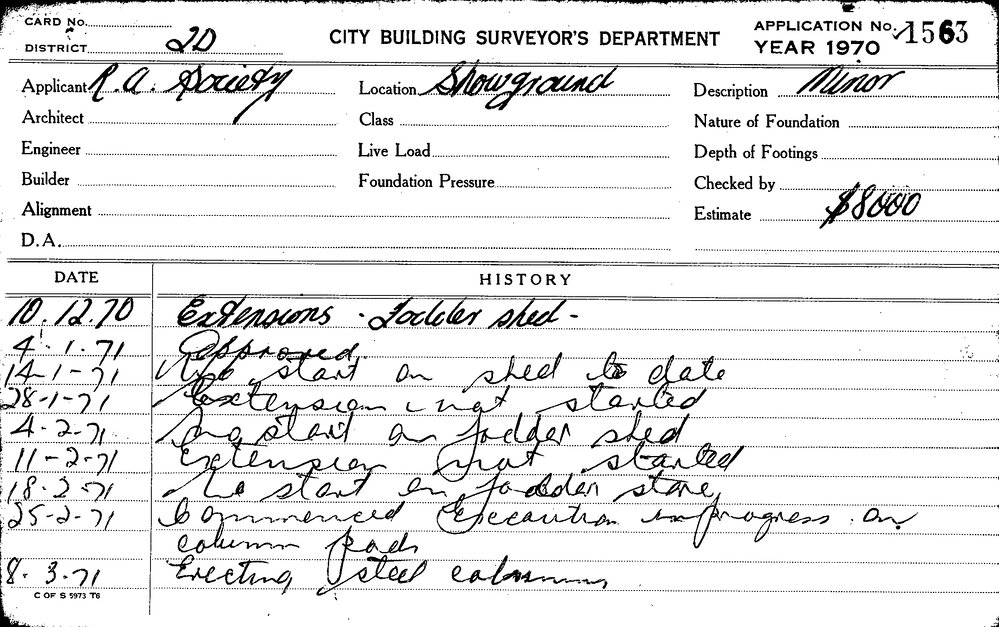 CARD No.
DISTRICT 2D
CITY BUILDING SURVEYOR'S DEPARTMENT
APPLICATION No. 1563
YEAR 1970
Applicant R.A. Society
Location Showground
Description Minor
Architect
Class
Nature of Foundation
Engineer
Live Load
Depth of Footings
Builder
Foundation Pressure
Checked by
Alignment
Estimate $8000
D.A.
DATE HISTORY
10.12.70 Extensions - Fodder shed -
4.1.71 Approved.
14-1-71 No start on shed to date
28-1-71 Extension not started
4-2-71 No start on fodder shed
11-2-71 Extension not started
18-2-71 No start on fodder store
25-2-71 Commenced Excavation in progress on
column pads
8.3.71 Erecting steel columns
C OF S 5973 T6